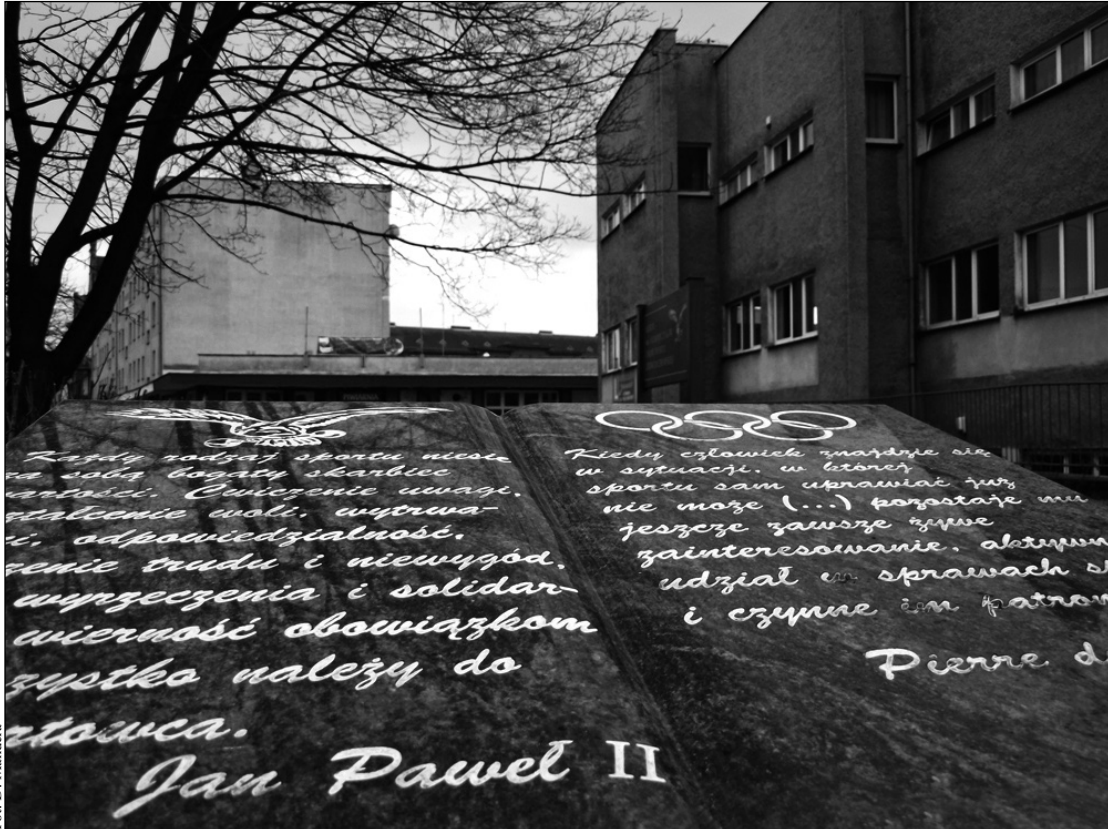 Każdy rodzaj sportu niesie
na sobą bogaty skarbiec
wartości. Ćwiczenie uwagi,
ształcenie woli, wytrwa-
ci, odpowiedzialność,
zenie trudu i niewygód,
wyrzeczenia i solidar-
wierność obowiązkom
zystko należy do
rtowca.
Jan Paweł II
Kiedy człowiek znajdzie się
w sytuacji, w której
sportu sam uprawiać już
nie może (...) pozostaje mu
jeszcze zawsze żywe
zainteresowanie, aktywn
udział w sprawach s
i czynne im patron
Pierre d